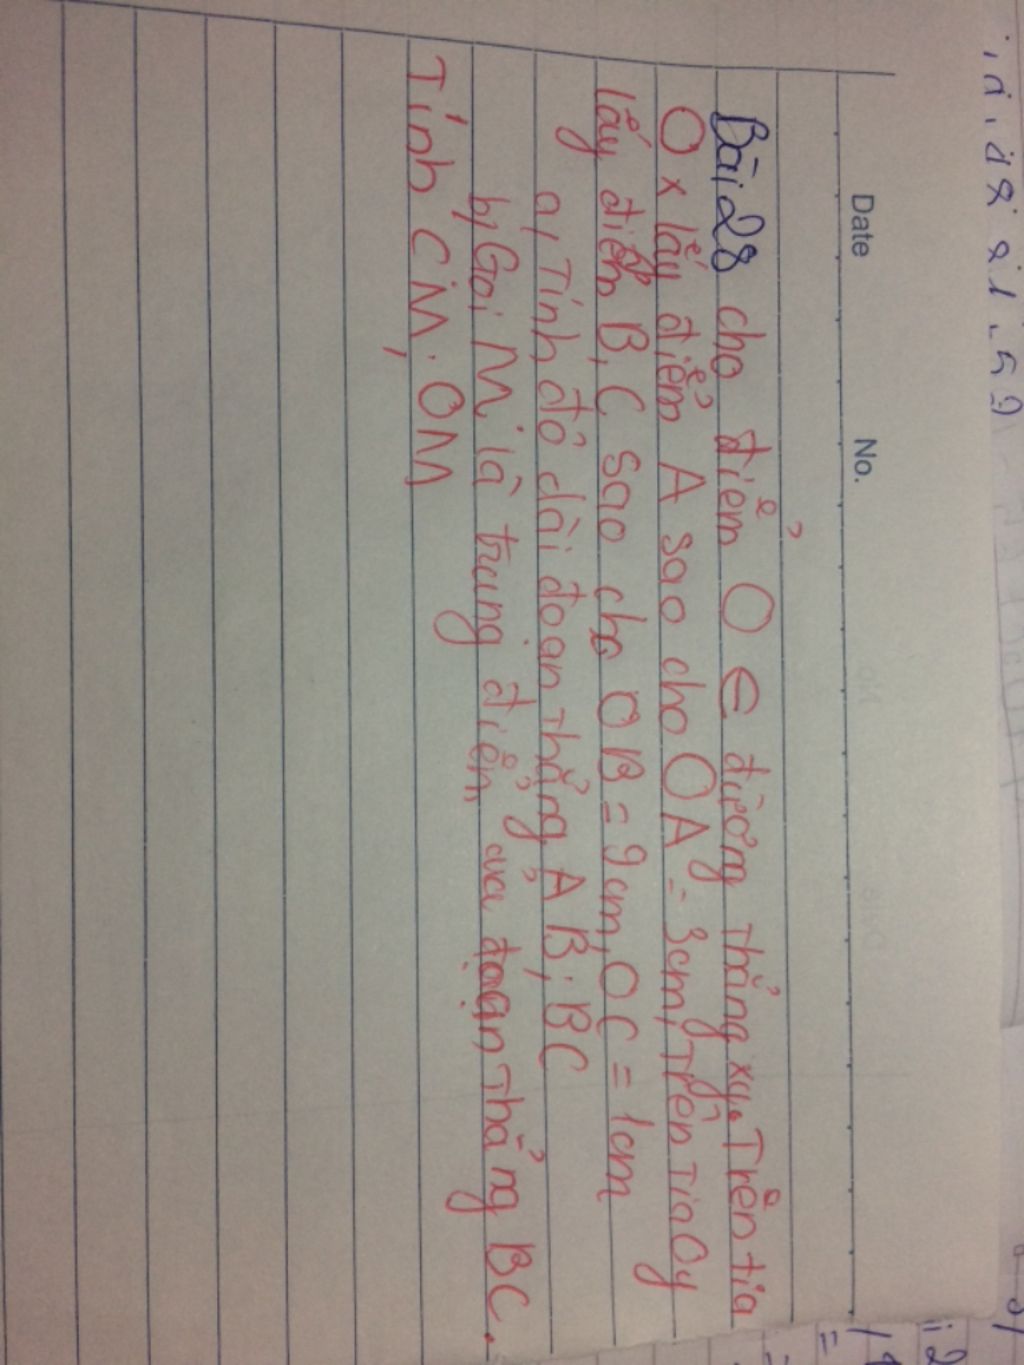 Date No.
Bài 28 cho điểm O ∈ đường thẳng xy. Trên tia
Ox lấy điểm A sao cho OA = 3cm, Trên tia Oy
lấy điểm B, C sao cho OB = 9cm, OC = 1cm
a, Tính độ dài đoạn thẳng AB; BC
b, Gọi M là trung điểm của đoạn thẳng BC.
Tính CM, OM